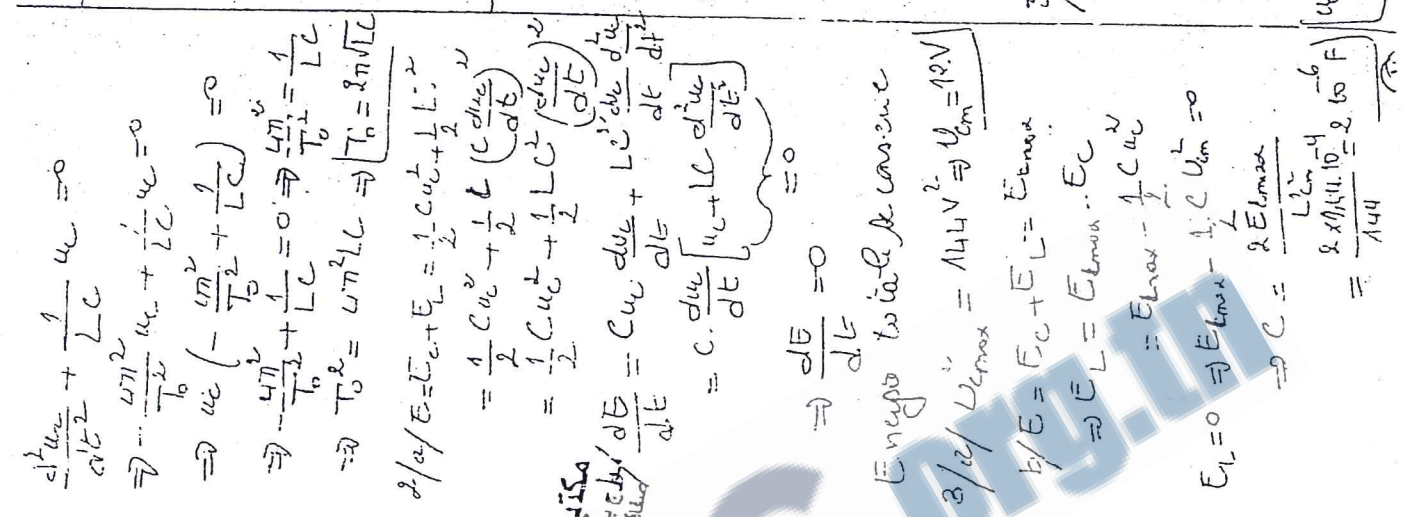 d²u_c/dt² + 1/LC u_c = 0
⇒ - 4π²/T₀² u_c + 1/LC u_c = 0
⇒ u_c (- 4π²/T₀² + 1/LC) = 0
⇒ - 4π²/T₀² + 1/LC = 0 ⇒ 4π²/T₀² = 1/LC
⇒ T₀² = 4π² LC ⇒ T₀ = 2π√LC
2/a/ E = E_c + E_L = 1/2 C u_c² + 1/2 L i²
= 1/2 C u_c² + 1/2 L (C du_c/dt)²
= 1/2 C u_c² + 1/2 LC² (du_c/dt)²
dE/dt = C u_c du_c/dt + LC² du_c/dt d²u_c/dt²
= C. du_c/dt [u_c + LC d²u_c/dt²]
= 0
⇒ dE/dt = 0
Energie totale se conserve
3/a/ U²cmax = 144V² ⇒ Ucm = 12V
b/ E = E_c + E_L = E_Lmax
⇒ E_L = E_Lmax - E_c
= E_Lmax - 1/2 C u_c²
E_L = 0 ⇒ E_Lmax - 1/2 C U²cm = 0
⇒ C = 2 E_Lmax / U²cm
= 2 x 1,44.10⁻⁴ / 144 = 2 10⁻⁶ F
org.tn